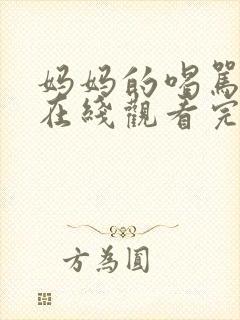 妈妈的喝罵
在綫觀看完
方為圓